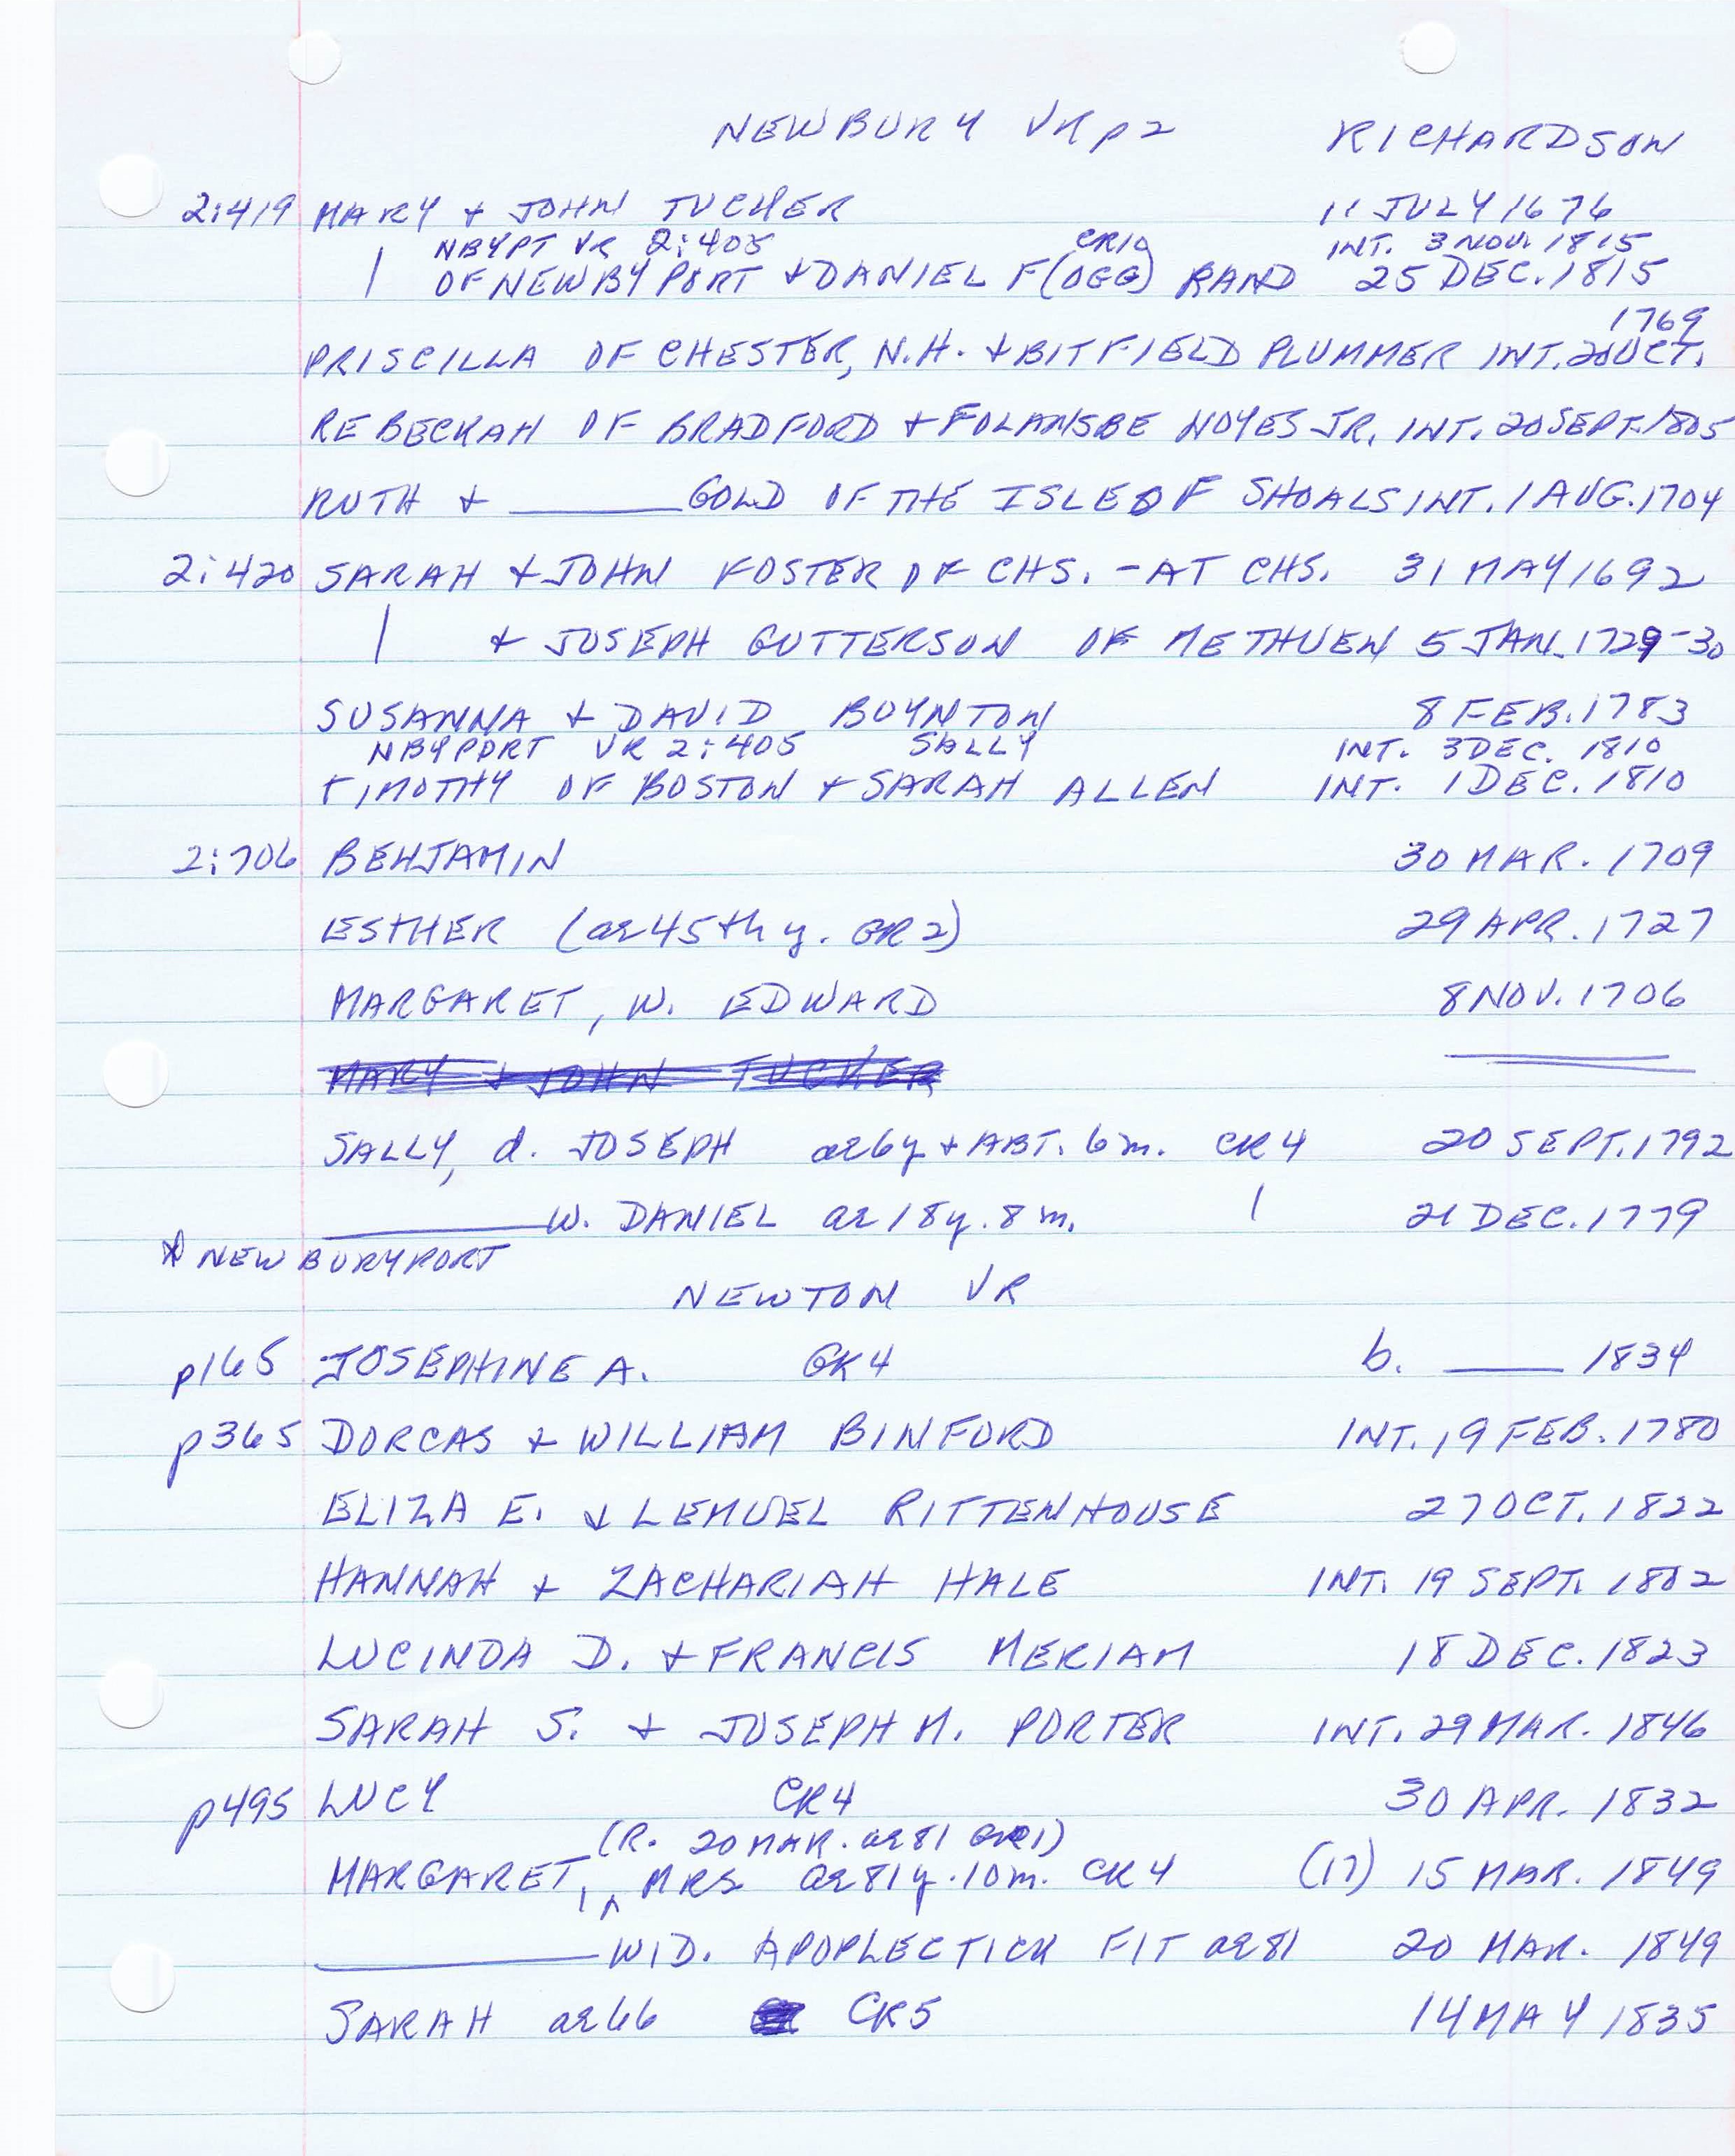 NEWBURY VR p2 RICHARDSON
2:419 MARY + JOHN TUCKER 11 JULY 1676
NBYPT VR 2:405 CR10 INT. 3 NOV. 1815
| OF NEWBYPORT + DANIEL F(OGG) RAND 25 DEC. 1815
1769
PRISCILLA OF CHESTER, N.H. + BITFIELD PLUMMER INT. 20 OCT.
REBECKAH OF BRADFORD + FOLANSBE NOYES JR. INT. 20 SEPT. 1805
RUTH + ______ GOLD OF THE ISLE OF SHOALS INT. 1 AUG. 1704
2:420 SARAH + JOHN FOSTER OF CHS. - AT CHS. 31 MAY 1692
| + JOSEPH GUTTERSON OF METHUEN 5 JAN. 1729-30
SUSANNA + DAVID BOYNTON 8 FEB. 1783
NBYPORT VR 2:405 SALLY INT. 3 DEC. 1810
TIMOTHY OF BOSTON + SARAH ALLEN INT. 1 DEC. 1810
2:706 BENJAMIN 30 MAR. 1709
ESTHER (ae 45th y. GR2) 29 APR. 1727
MARGARET, W. EDWARD 8 NOV. 1706
MARY + JOHN TUCKER
SALLY, d. JOSEPH ae 6y + ABT. 6 m. CR4 20 SEPT. 1792
______ W. DANIEL ae 18y. 8 m. | 21 DEC. 1779
* NEWBURYPORT
NEWTON VR
p165 JOSEPHINE A. GR4 b. ____ 1834
p365 DORCAS + WILLIAM BINFORD INT. 19 FEB. 1780
ELIZA E. + LEMUEL RITTENHOUSE 27 OCT. 1822
HANNAH + ZACHARIAH HALE INT. 19 SEPT. 1802
LUCINDA D. + FRANCIS MERIAM 18 DEC. 1823
SARAH S. + JOSEPH M. PORTER INT. 29 MAR. 1846
p495 LUCY CR4 30 APR. 1832
(R. 20 MAR. ae 81 GR1)
MARGARET, MRS ae 81y. 10m. CR4 (17) 15 MAR. 1849
______ WID. APOPLECTICK FIT ae 81 20 MAR. 1849
SARAH ae 66 CR5 14 MAY 1835